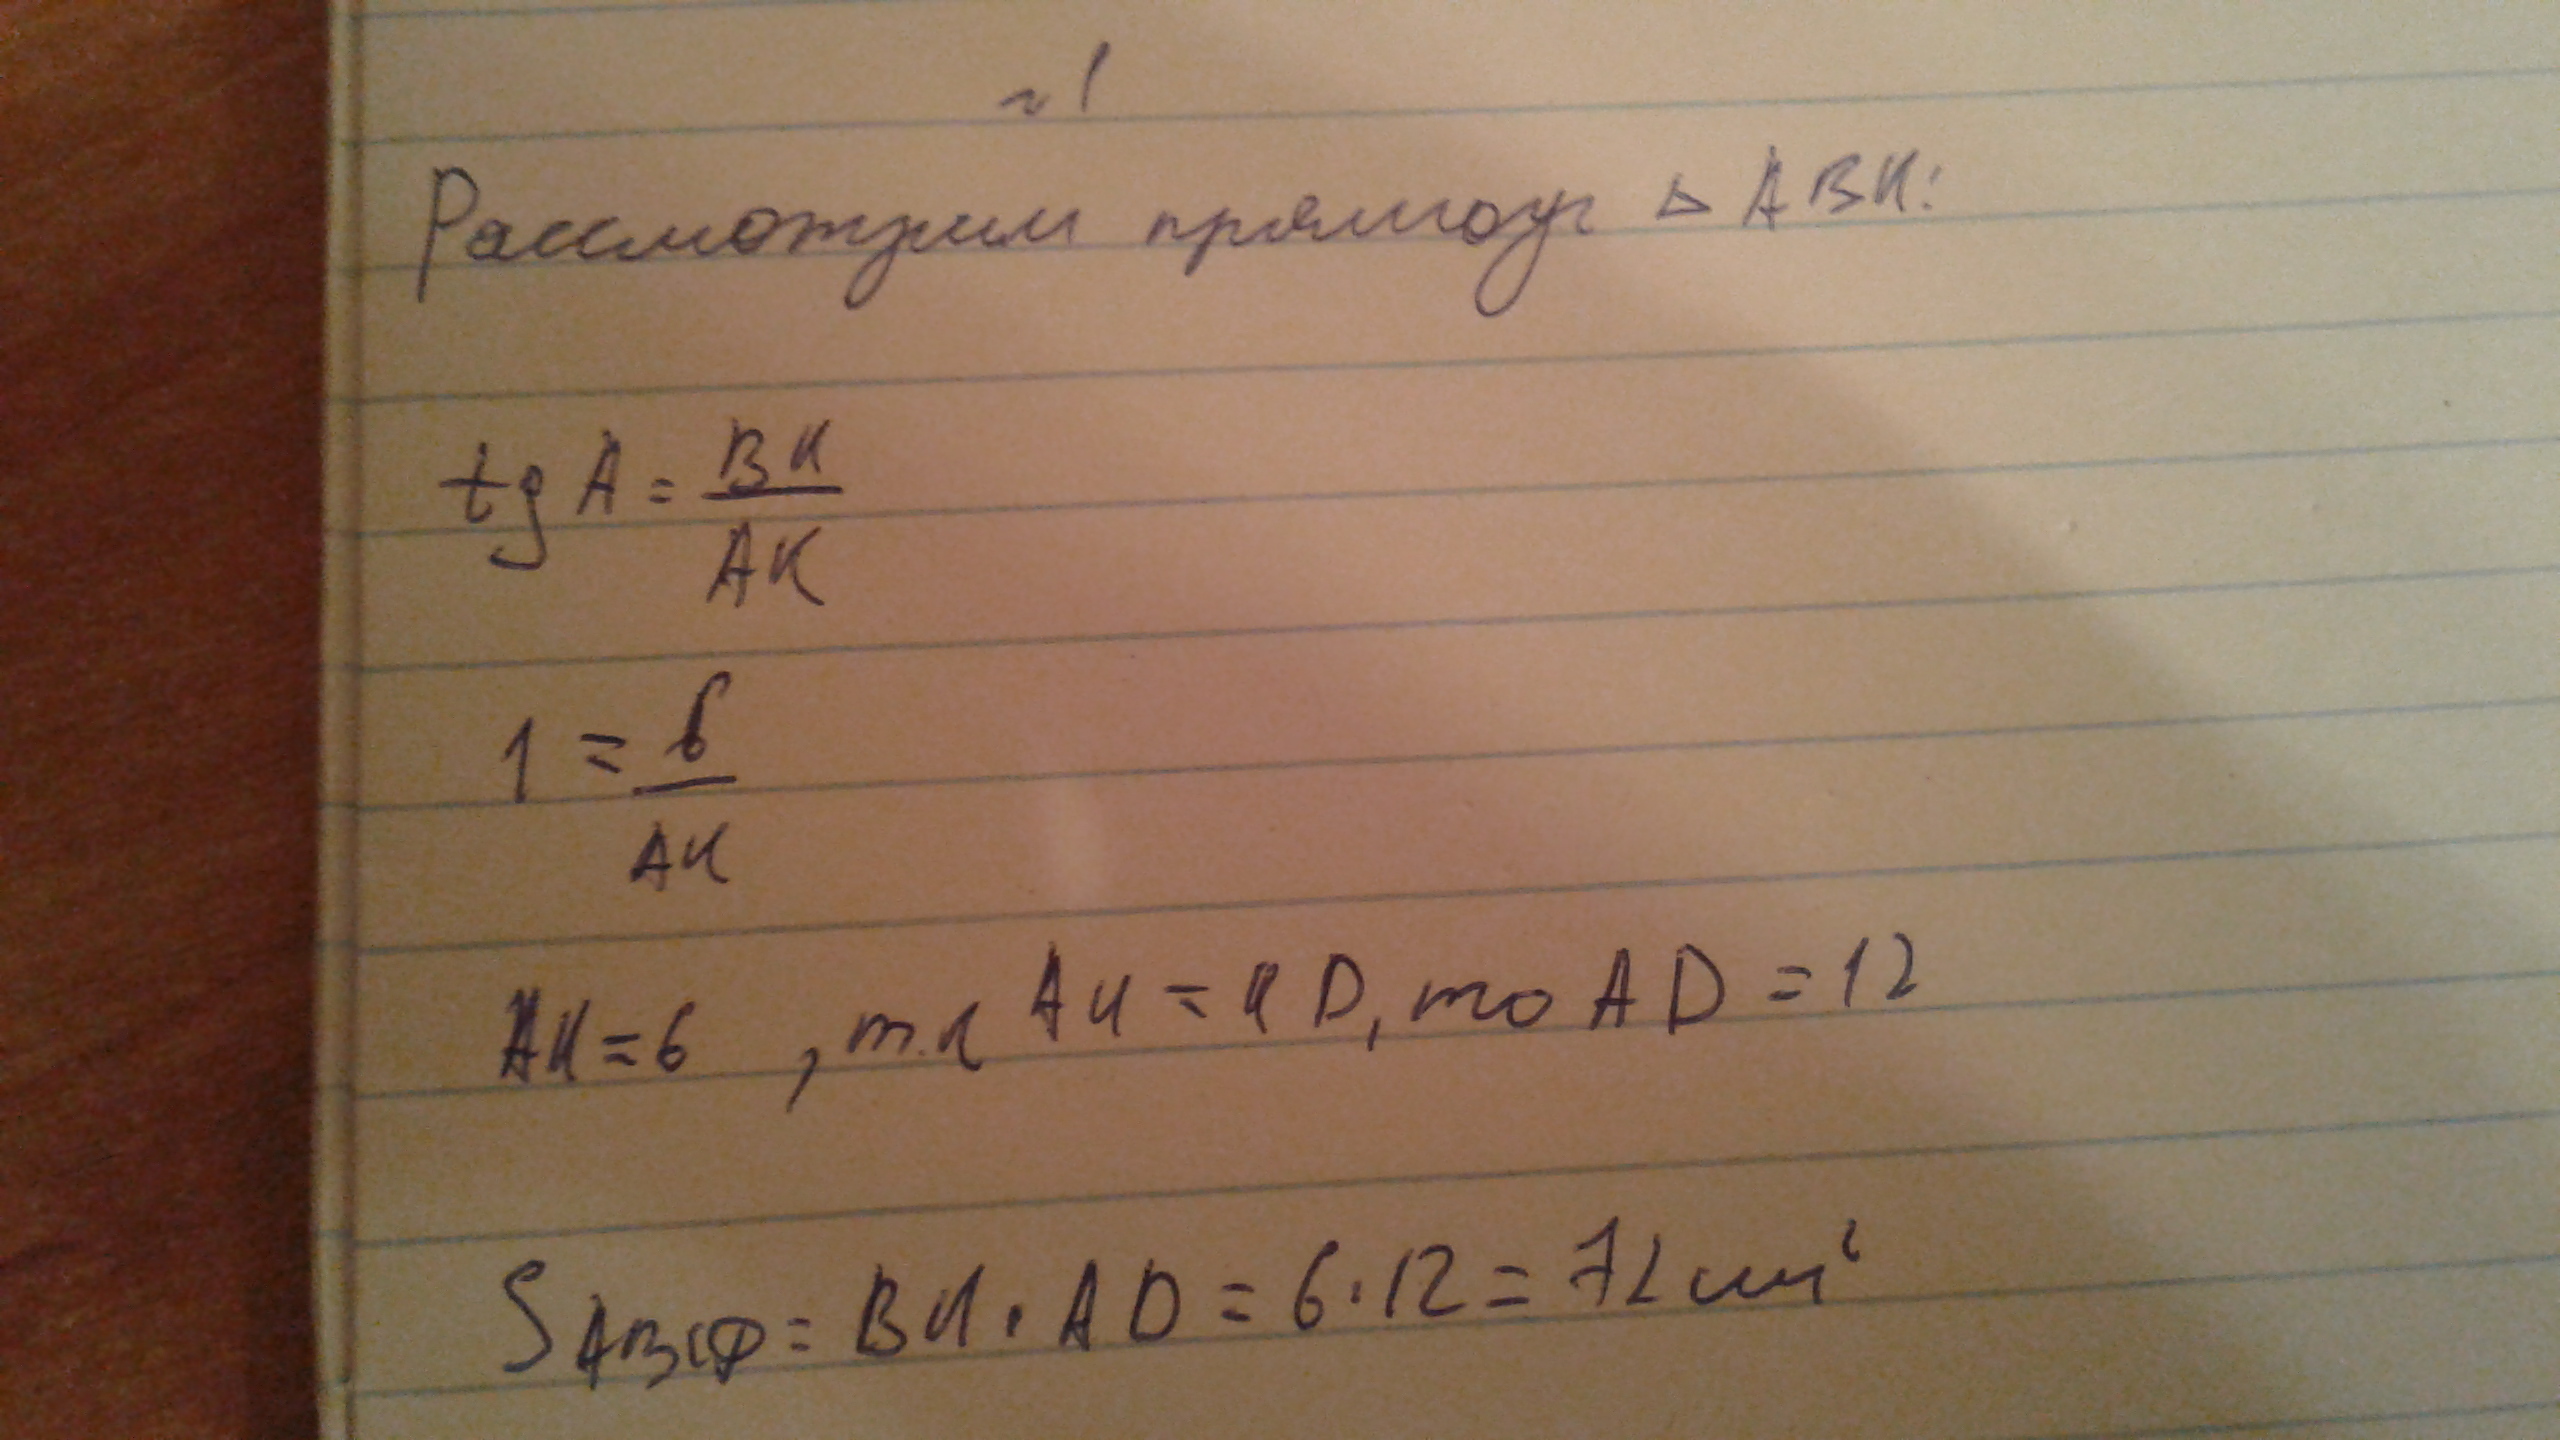 ~1
Рассмотрим прямоуг △ ABK:
tg A = BK
AK
1 = 6
AK
AK = 6 , т.к AK = KD, то AD = 12
SABCD = BK · AD = 6 · 12 = 72 см²